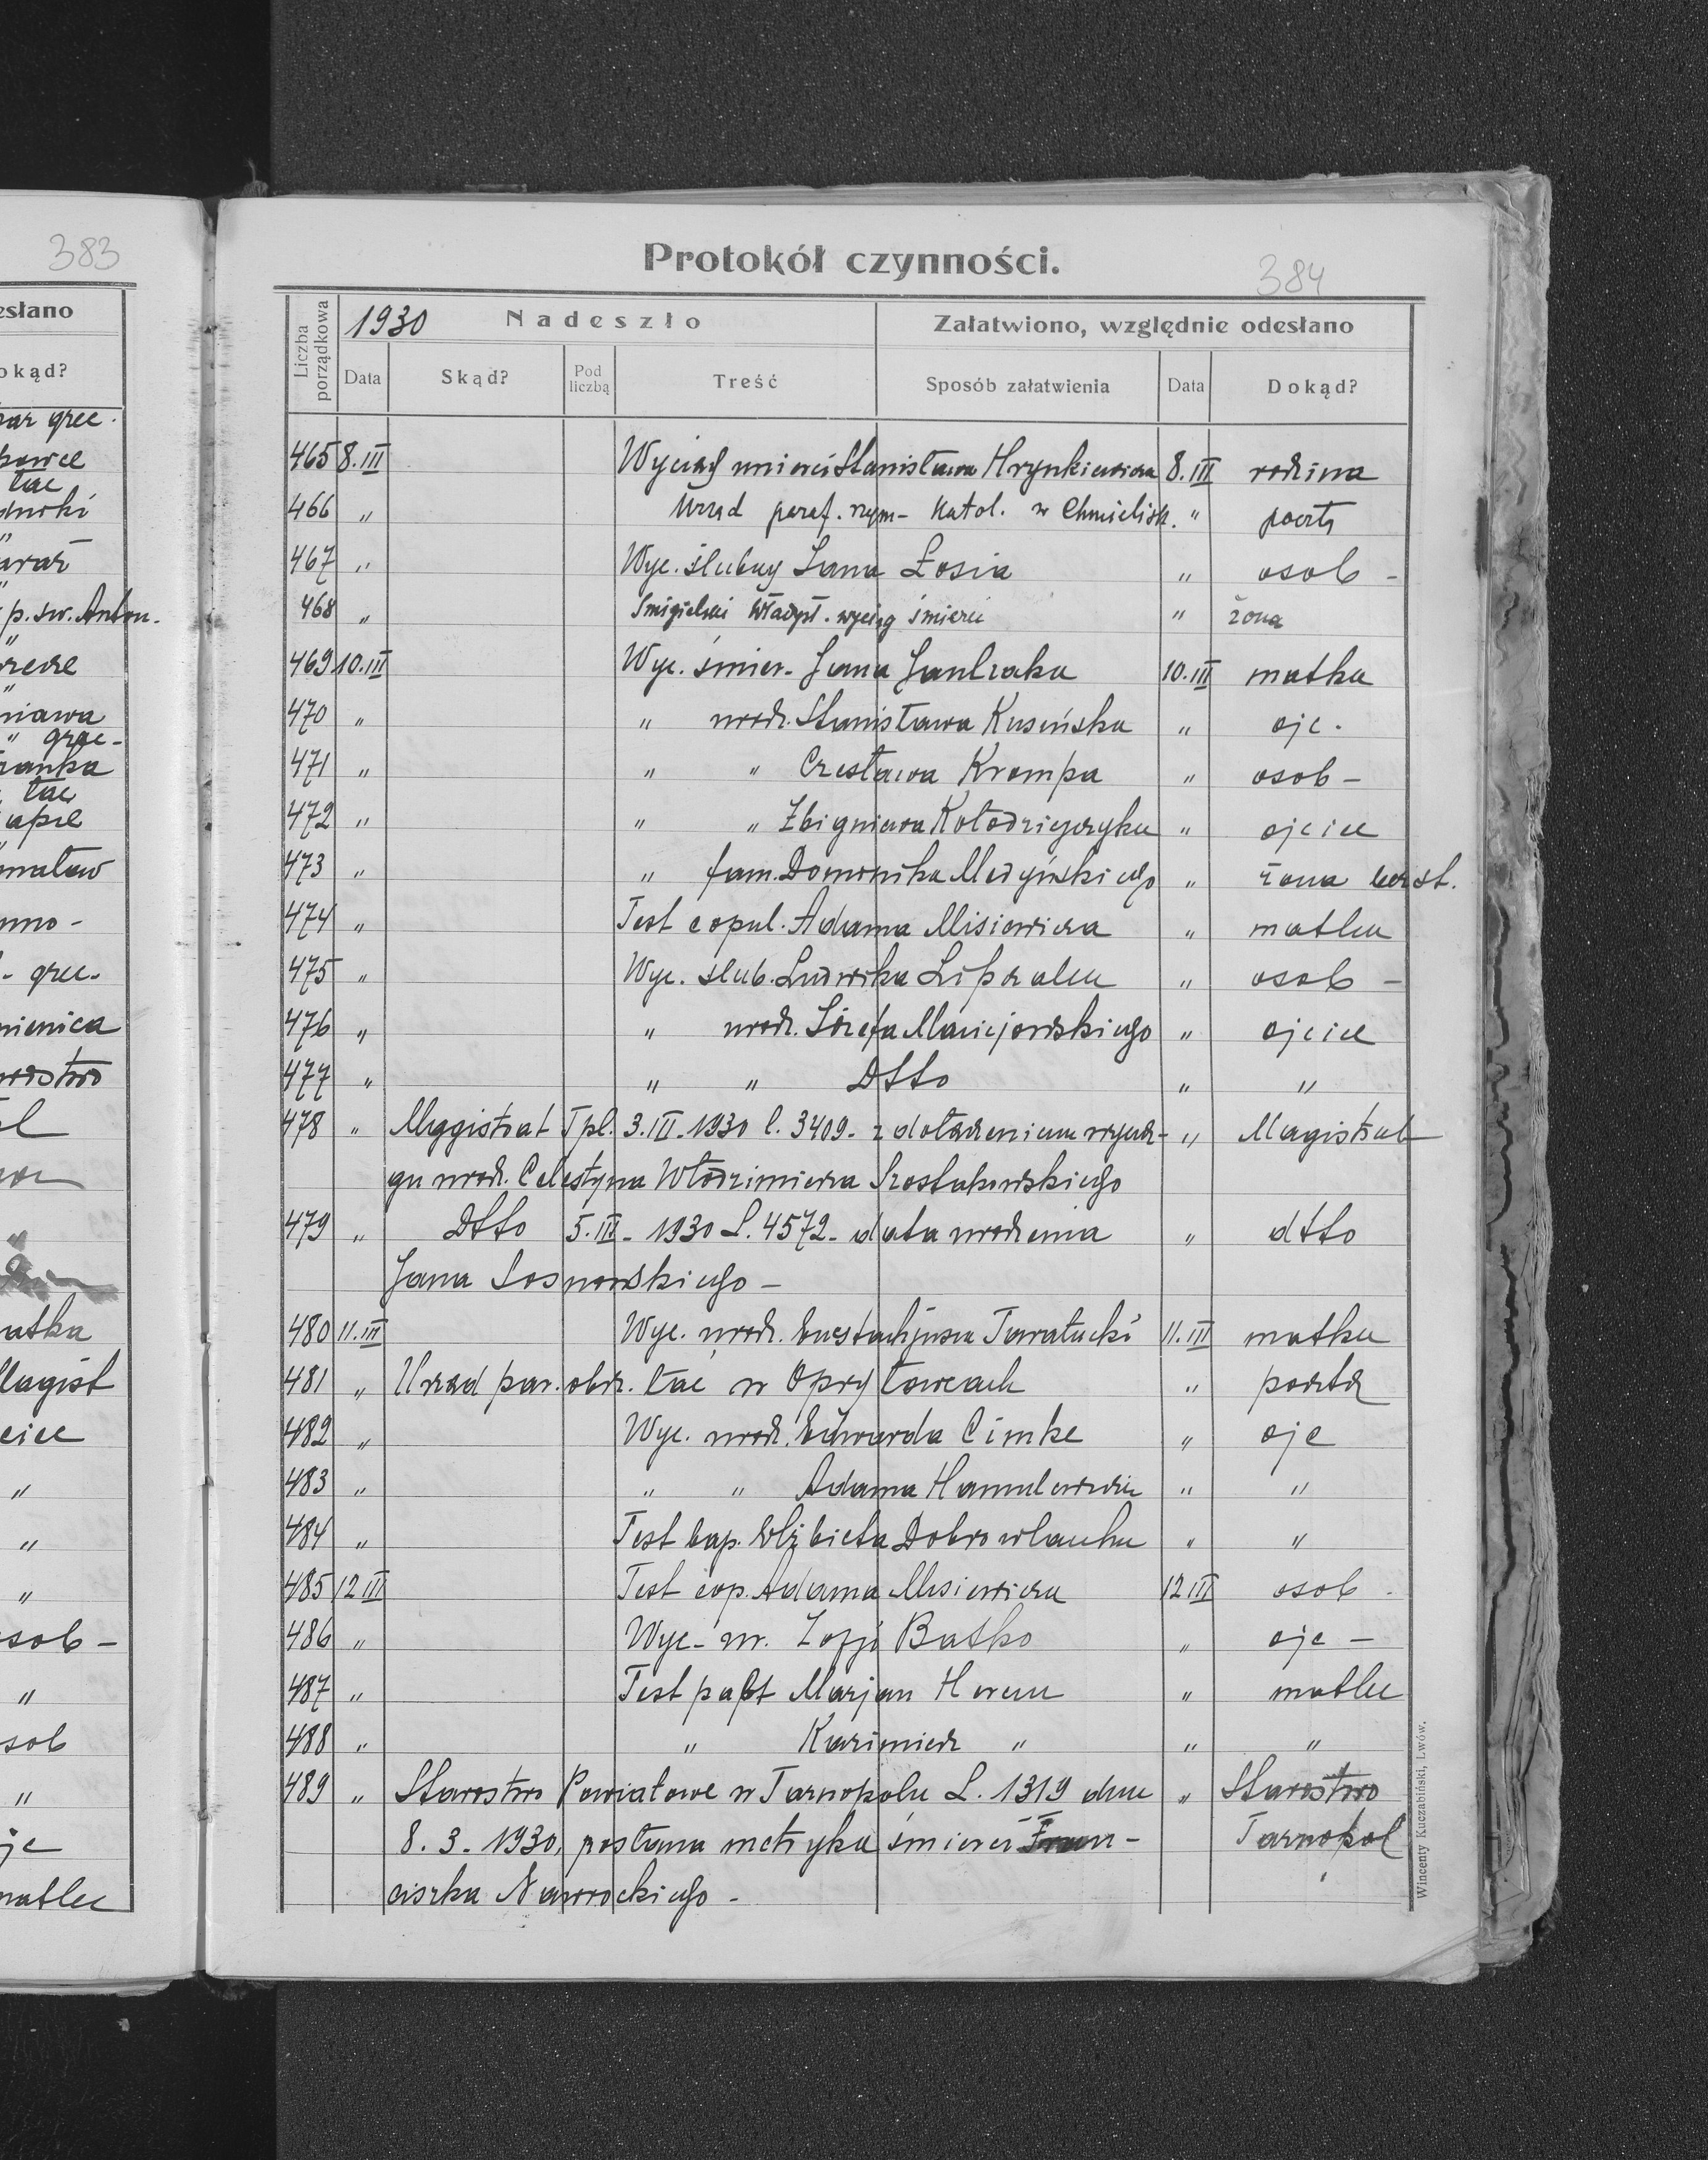 383
esłano
okąd?
par grec.
tac
p. sw. Anton.
"
niawa
" grac-
tac
"
- grec.
mienica
atka
Magist
"
"
"
osob -
"
osob
"
oje
Protokół czynności.
384
Liczba porządkowa
1930 Nadeszło
Załatwiono, względnie odesłano
Data Skąd? Pod liczbą Treść Sposób załatwienia Data Dokąd?
465 8.III Wyciąg śmierci Stanisława Hrynkiewicza 8.III rodzina
466 " Urząd paraf. rzym- katol. w Chmielisk. " poczta
467 " Wyc. ślubny Jana Łosia " osob -
468 " Śmigielski Władysł. wyciąg śmierci " żona
469 10.III Wyc. śmier. Jana Janczaka 10.III matka
470 " " urodz. Stanisława Kusińska " ojc.
471 " " " Czesława Krompa " osob -
472 " " " Zbigniewa Kołodziejczyka " ojciec
473 " " fam. Dominika Medyńskiego " żona
474 " Test copul. Adama Misiewicza " matka
475 " Wyc. ślub. Ludwika Lipczaka " osob -
476 " " urodz. Józefa Maciejowskiego " ojciec
477 " " " Dtto " "
478 " Maggistrat Tpl. 3.III-1930 l. 3409- z dołączeniem wycią- " Magistrat
gu urodz. Celestyna Włodzimierza Szostakowskiego
479 " Dtto 5.III- 1930 L. 4572- data urodzenia " dtto
Jana Sosnowskiego -
480 11.III Wyc. urodz. Eustachjusza Tawałucki 11.III matka
481 " Urząd par. obrz. łac w Opryłowcach " poczta
482 " Wyc. urodz. Edwarda Cimke " ojc
483 " " " Adama Hamulewicz " "
484 " Test bap. Elżbieta " "
485 12 III Test cop. Adama Misiewicza 12 III osob -
486 " Wyc- ur. Zofji Batko " ojc -
487 " Test bapt Marjan " matka
488 " " Kazimierz " " "
489 " Starostwo Powiatowe w Tarnopolu L. 1319 dnia " Starostwo
8. 3. 1930, posłana metryka śmierci Fran- Tarnopol
ciszka Nawrockiego -
Wincenty Kuczabiński, Lwów.